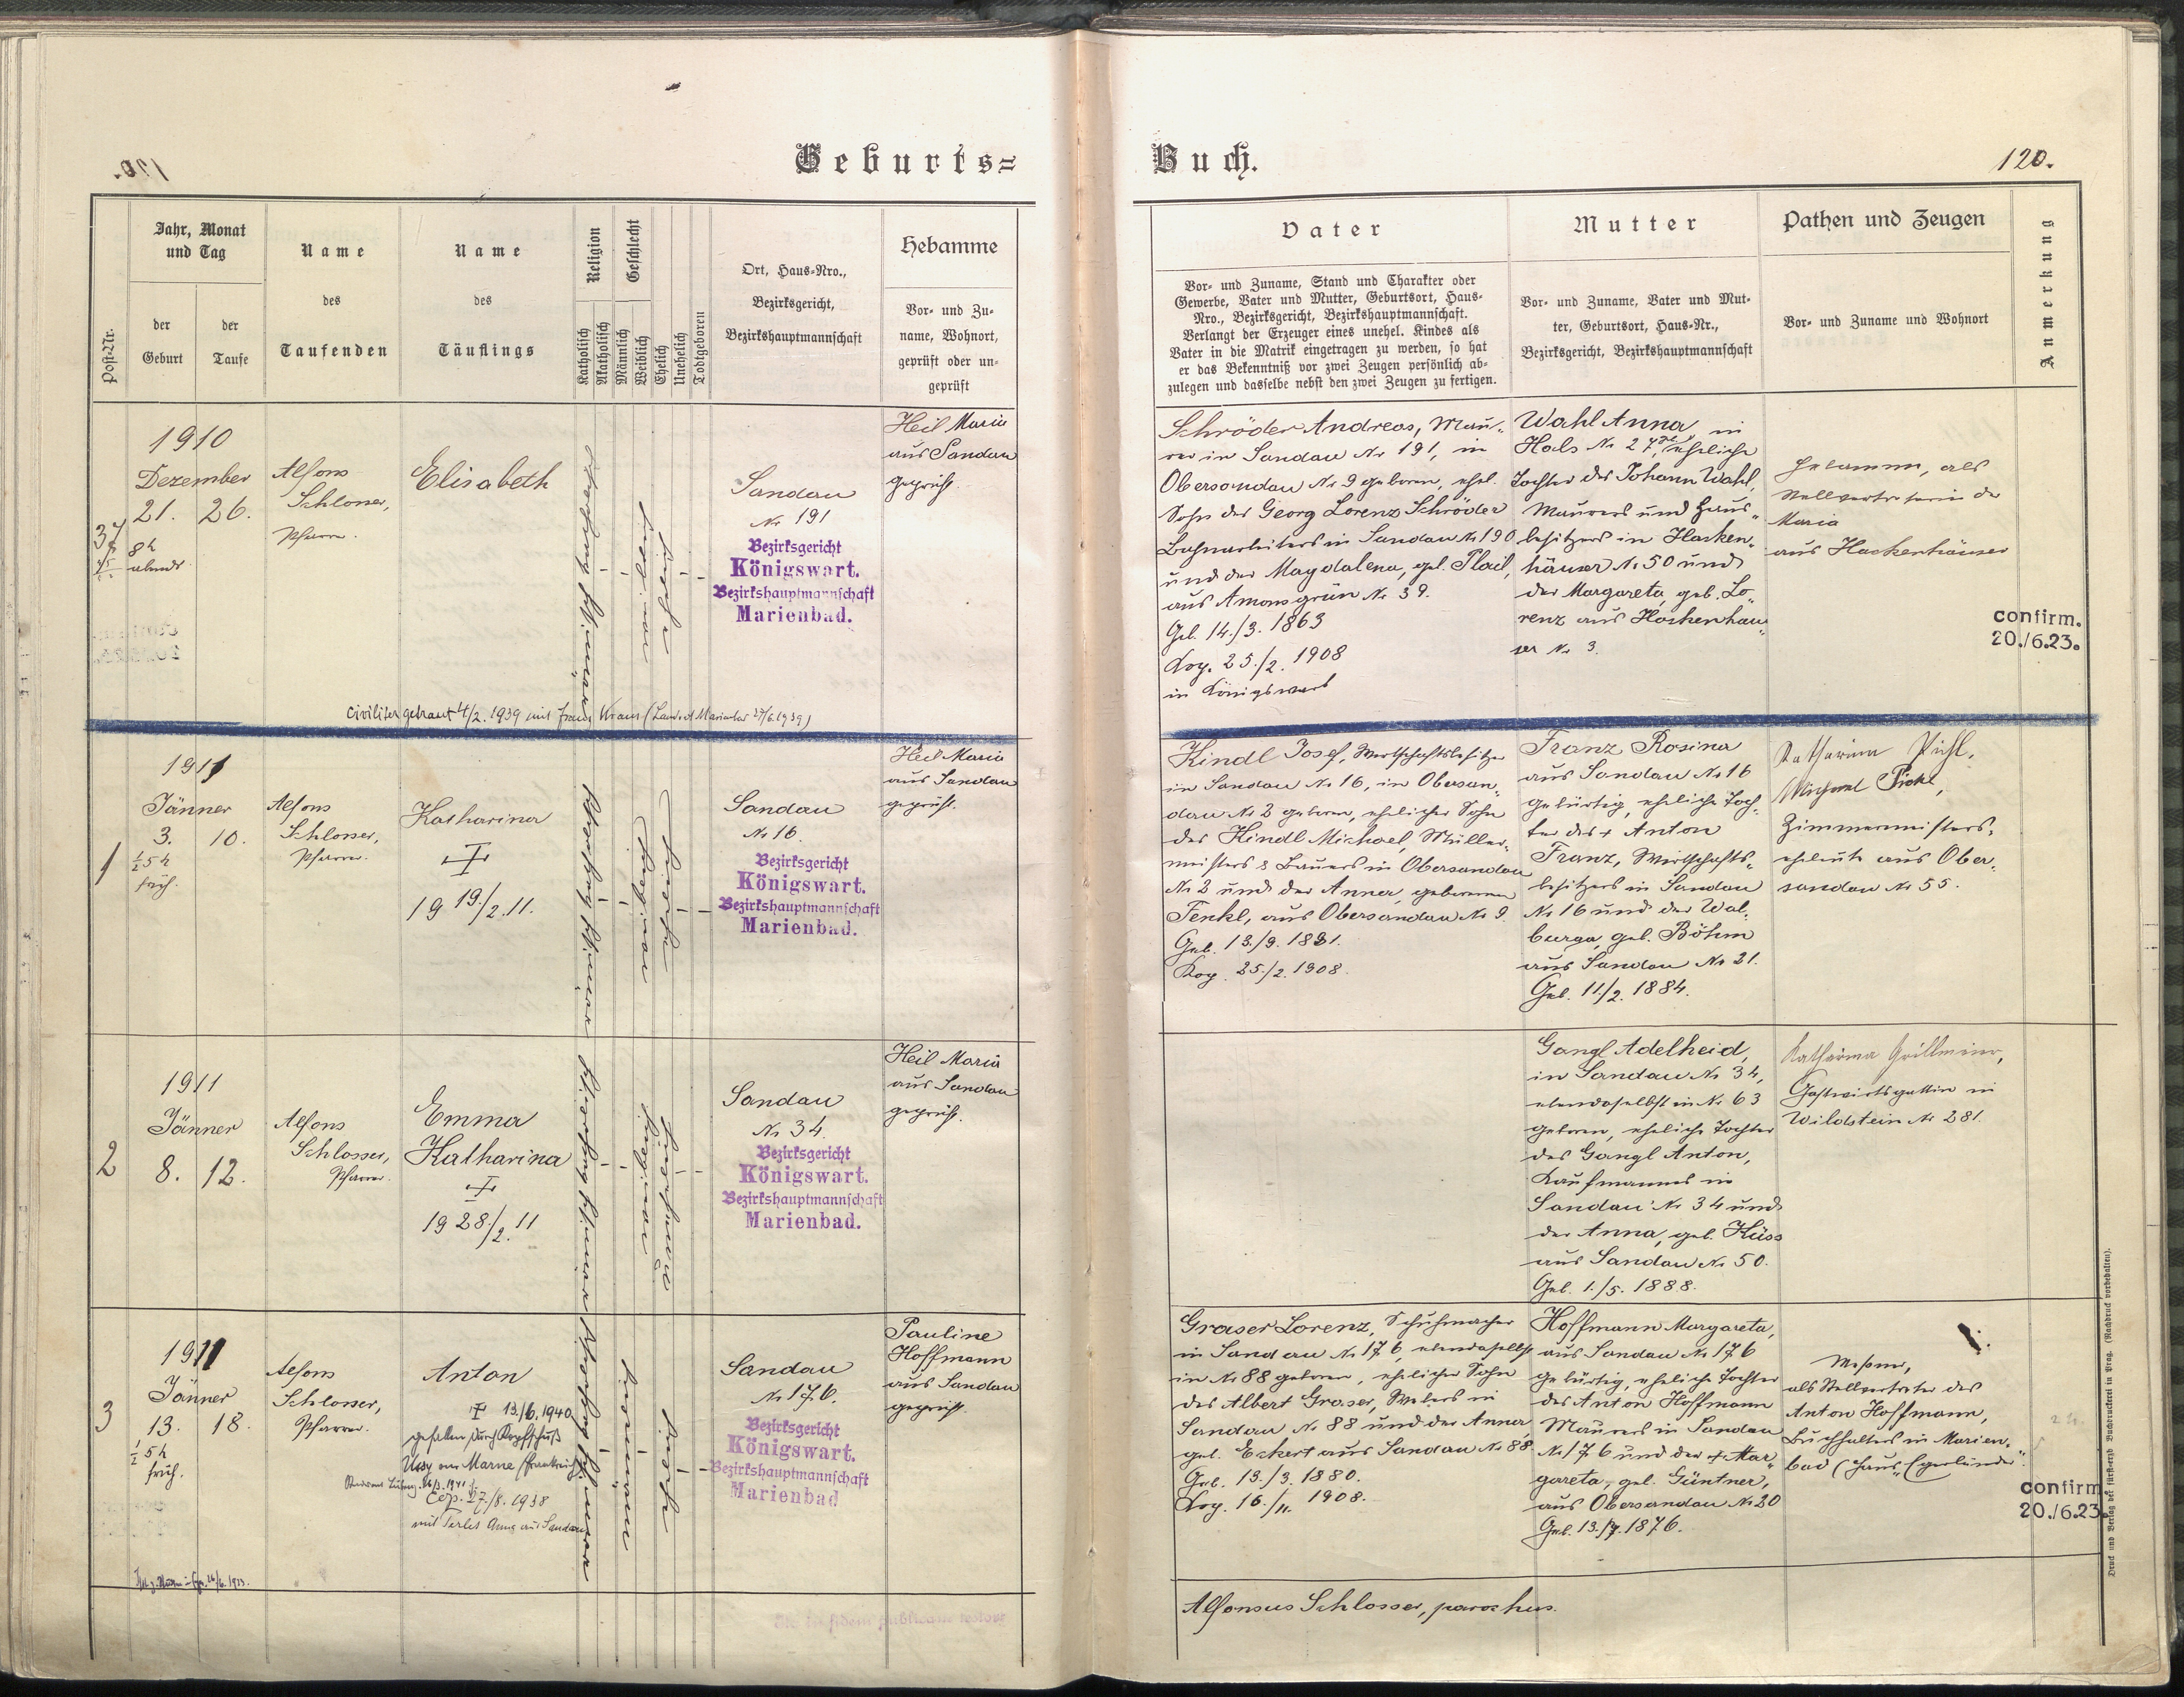 Geburts=
Buch.
120.
Post-Nr.
Jahr, Monat
und Tag
der
Geburt
der
Taufe
Name
des
Taufenden
Name
des
Täuflings
Religion
Katholisch
Akatholisch
Geschlecht
Männlich
Weiblich
Ehelich
Unehelich
Todtgeboren
Ort, Haus-Nro.,
Bezirksgericht,
Bezirkshauptmannschaft
Hebamme
Vor- und Zu-
name, Wohnort,
geprüft oder un-
geprüft
Vater
Vor- und Zuname, Stand und Charakter oder
Gewerbe, Vater und Mutter, Geburtsort, Haus-
Nro., Bezirksgericht, Bezirkshauptmannschaft.
Verlangt der Erzeuger eines unehel. Kindes als
Vater in die Matrik eingetragen zu werden, so hat
er das Bekenntniß vor zwei Zeugen persönlich ab-
zulegen und dasselbe nebst den zwei Zeugen zu fertigen.
Mutter
Vor- und Zuname, Vater und Mut-
ter, Geburtsort, Haus-Nr.,
Bezirksgericht, Bezirkshauptmannschaft
Pathen und Zeugen
Vor- und Zuname und Wohnort
Anmerkung
37
1910
Dezember
21. 26.
8h
abends
Alfons
Schlosser,
Pfarrer.
Elisabeth
Sandau
Nr 191
Bezirksgericht
Königswart.
Bezirkshauptmannschaft
Marienbad.
Heil Maria
aus Sandau
geprüft.
Civiliter getraut 4/2. 1939 mit Franz Kraus (Landrat Marienbad 27/6.1939)
Schröder Andreas, Mau-
rer in Sandau Nr 191, in
Obersandau Nr 9 geboren, ehel.
Sohn des Georg Lorenz Schröder
Bahnarbeiters in Sandau Nr 190
und der Magdalena, geb. Plail,
aus Amonsgrün Nr 39.
Geb. 14./3. 1863
Kop. 25./2. 1908
in Königswart
Wahl Anna, in
Hals Nr 27, eheliche
Tochter des Johann Wahl,
Maurers und Haus-
besitzers in Hacken-
häuser Nr 50 und
der Margareta, geb. Lo-
renz aus Hackenhäu-
ser Nr 3.
Hebamme, als
Stellvertreterin der
Maria
aus Hackenhäuser
confirm.
20./6.23.
1
1911
Jänner
3. 10.
½5h
früh.
Alfons
Schlosser,
Pfarrer.
Katharina
19 19./2. 11.
Sandau
Nr 16.
Bezirksgericht
Königswart.
Bezirkshauptmannschaft
Marienbad.
Heil Maria
aus Sandau
geprüft.
Kindl Josef, Wirtschaftsbesitzer
in Sandau Nr 16, in Obersan-
dau Nr 2 geboren, ehelicher Sohn
des Kindl Michael, Müller-
meisters & Bauers in Obersandau
Nr 2 und der Anna, geborenen
Fenkl, aus Obersandau Nr 9.
Geb. 13/9. 1881.
Kop. 25./2. 1908.
Franz Rosina
aus Sandau Nr 16
gebürtig, eheliche Toch-
ter des + Anton
Franz, Wirtschafts-
besitzers in Sandau
Nr 16 und der Wal-
burga, geb. Böhm
aus Sandau Nr 21.
Geb. 11./2. 1884.
Katharina Pichl,
Michael Pichl,
Zimmermeisters-
eheleute aus Ober-
sandau Nr 55.
2
1911
Jänner
8. 12.
Alfons
Schlosser,
Pfarrer.
Emma
Katharina
19 28./2. 11
Sandau
Nr 34.
Bezirksgericht
Königswart.
Bezirkshauptmannschaft
Marienbad.
Heil Maria
aus Sandau
geprüft.
Gangl Adelheid,
in Sandau Nr 34,
ebendaselbst in Nr 63
geboren, eheliche Tochter
des Gangl Anton,
Kaufmannes in
Sandau Nr 34 und
der Anna, geb. Hüss
aus Sandau Nr 50.
Geb. 1./5. 1888.
Katharina Grillmeier,
Gastwirtsgattin in
Wildstein Nr 281.
3
1911
Jänner
13. 18.
½5h
früh.
Alfons
Schlosser,
Pfarrer.
Anton
13/6. 1940
gefallen durch Kopfschuß
Ussy am Marne (Frankreich)
Cop. 27./8. 1938
mit Anna aus Sandau
Sandau
Nr 176.
Bezirksgericht
Königswart.
Bezirkshauptmannschaft
Marienbad
Pauline
Hoffmann
aus Sandau
geprüft.
Graser Lorenz, Schuhmacher
in Sandau Nr 176, ebendaselbst
in Nr 88 geboren, ehelicher Sohn
des Albert Graser, Webers in
Sandau Nr 88 und der Anna,
geb. Eckert aus Sandau Nr 88
Geb. 13./3. 1880.
Kop. 16./11. 1908.
Hoffmann Margareta,
aus Sandau Nr 176
gebürtig, eheliche Tochter
des Anton Hoffmann
Maurers in Sandau
Nr 176 und der + Mar-
gareta, geb. Güntner,
aus Obersandau Nr 20
Geb. 13./7. 1876.
als Stellvertreter des
Anton Hoffmann,
Buchhalters in Marien-
bad (Haus „Egerländer“.
confirm.
20./6.23.
Alfonsus Schlosser, parochus.
Druck und Verlag der fürst-erzb Buchdruckerei in Prag. (Nachdruck vorbehalten).